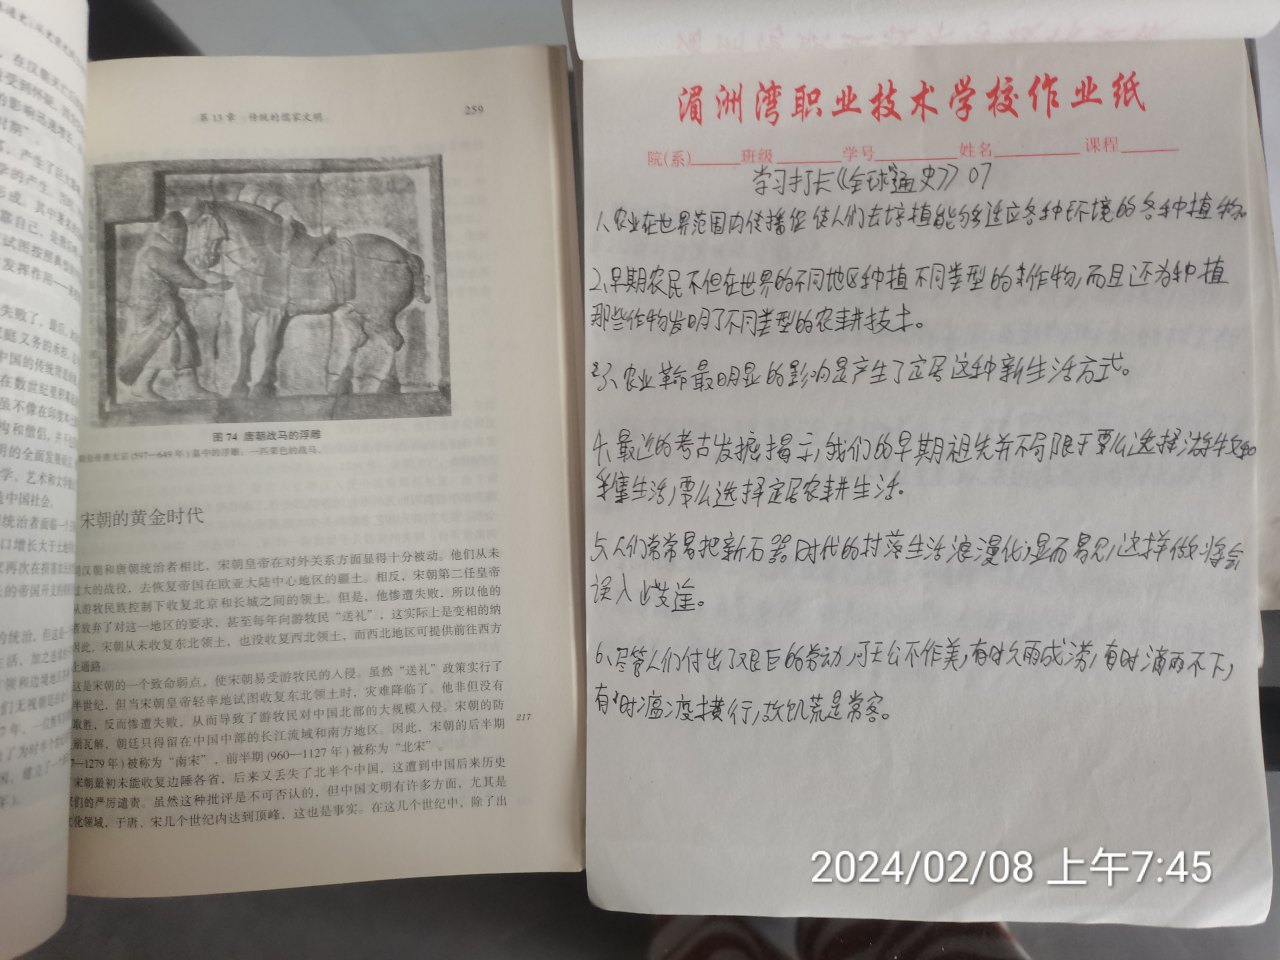 第 13 章 传统的儒家文明 259
图 74 唐朝战马的浮雕
(597—649 年) 墓中的浮雕:一匹栗色的战马。
宋朝的黄金时代
汉朝和唐朝统治者相比,宋朝皇帝在对外关系方面显得十分被动。他们从未
大的战役,去恢复帝国在欧亚大陆中心地区的疆土。相反,宋朝第二任皇帝
游牧民族控制下收复北京和长城之间的领土。但是,他惨遭失败,所以他的
者放弃了对这一地区的要求,甚至每年向游牧民“送礼”,这实际上是变相的纳
因此,宋朝从未收复东北领土,也没收复西北领土,而西北地区可提供前往西方
上通路。
这是宋朝的一个致命弱点,使宋朝易受游牧民的入侵。虽然“送礼”政策实行了
半世纪,但当宋朝皇帝轻率地试图收复东北领土时,灾难降临了。他非但没有
取胜,反而惨遭失败,从而导致了游牧民对中国北部的大规模入侵。宋朝的防
崩瓦解,朝廷只得留在中国中部的长江流域和南方地区。因此,宋朝的后半期 217
7—1279 年) 被称为“南宋”,前半期 (960—1127 年) 被称为“北宋”。
宋朝最初未能收复边陲各省,后来又丢失了北半个中国,这遭到中国后来历史
们的严厉谴责。虽然这种批评是不可否认的,但中国文明有许多方面,尤其是
化领域,于唐、宋几个世纪内达到顶峰,这也是事实。在这几个世纪中,除了出
湄洲湾职业技术学校作业纸
院(系)______班级______学号______姓名______课程______
学习打卡《全球通史》07
1、农业在世界范围内传播促使人们去培植能够适应各种环境的各种植物。
2、早期农民不但在世界的不同地区种植不同类型的农作物,而且还为种植
那些作物发明了不同类型的农耕技术。
3、农业革命最明显的影响是产生了定居这种新生活方式。
4、最近的考古发掘揭示,我们的早期祖先并不局限于要么选择游牧和
采集生活,要么选择定居农耕生活。
5、人们常常易把新石器时代的村落生活浪漫化;显而易见,这样做将会
误入歧途。
6、尽管人们付出了艰巨的劳动,可天公不作美,有时久雨成涝,有时滴雨不下,
有时瘟疫横行,故饥荒是常客。
2024/02/08 上午7:45